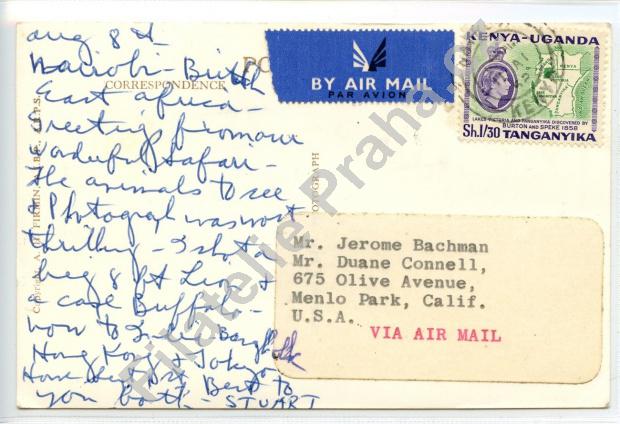 Aug 8th
Nairobi - British
East Africa -
Greetings from our
wonderful Safari -
the animals to see
& Photograph was most
thrilling - I shot a
big 8 ft Lion &
a cape Buffalo -
now to India Bangkok
Hong Kong & Tokyo
Home Best
you both - STUART
CORRESPONDENCE
PO
BY AIR MAIL
PAR AVION
KENYA-UGANDA
LAKES VICTORIA AND TANGANYIKA DISCOVERED BY
BURTON AND SPEKE 1858
Sh.1/30 TANGANYIKA
Mr. Jerome Bachman
Mr. Duane Connell,
675 Olive Avenue,
Menlo Park, Calif.
U.S.A.
VIA AIR MAIL
Filatelie Praha.cz